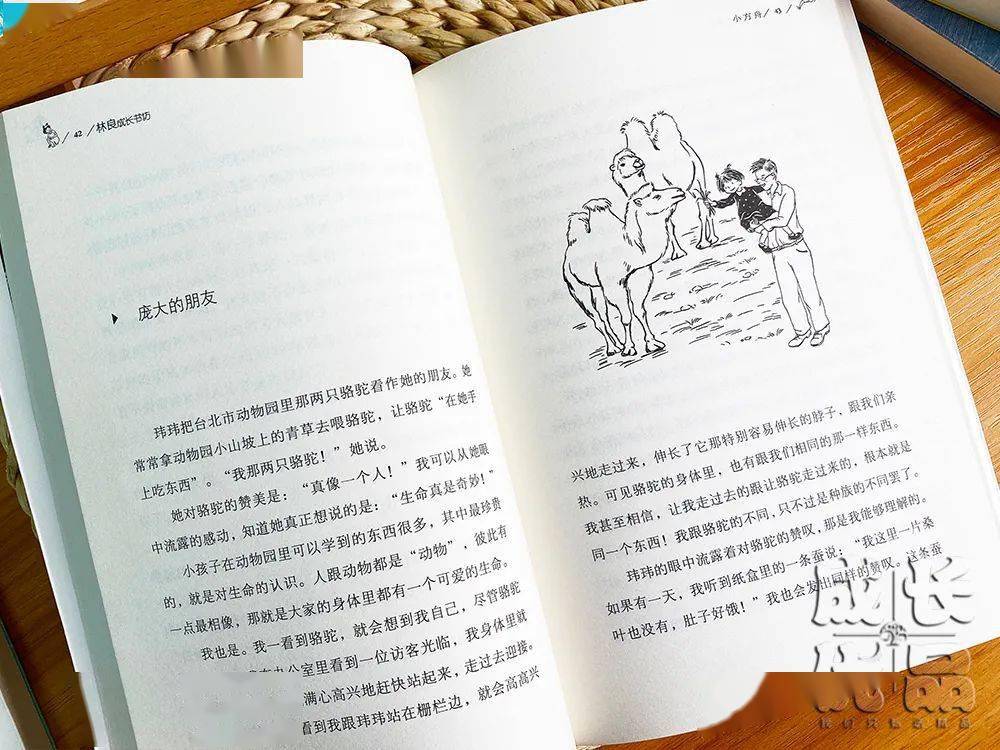 / 42 / 林良成长书坊
庞大的朋友
玮玮把台北市动物园里那两只骆驼看作她的朋友。她
常常拿动物园小山坡上的青草去喂骆驼，让骆驼“在她手
上吃东西”。“我那两只骆驼！”她说。
她对骆驼的赞美是：“真像一个人！”我可以从她眼
中流露的感动，知道她真正想说的是：“生命真是奇妙！”
小孩子在动物园里可以学到的东西很多，其中最珍贵
的，就是对生命的认识。人跟动物都是“动物”，彼此有
一点最相像，那就是大家的身体里都有一个可爱的生命。
我也是。我一看到骆驼，就会想到我自己，尽管骆驼
办公室里看到一位访客光临，我身体里就
满心高兴地赶快站起来，走过去迎接。
看到我跟玮玮站在栅栏边，就会高高兴
小方舟 / 43 /
兴地走过来，伸长了它那特别容易伸长的脖子，跟我们亲
热。可见骆驼的身体里，也有跟我们相同的那一样东西。
我甚至相信，让我走过去的跟让骆驼走过来的，根本就是
同一个东西！我跟骆驼的不同，只不过是种族的不同罢了。
玮玮的眼中流露着对骆驼的赞叹，那是我能够理解的。
如果有一天，我听到纸盒里的一条蚕说：“我这里一片桑
叶也没有，肚子好饿！”我也会发出同样的赞叹。这条蚕
成长